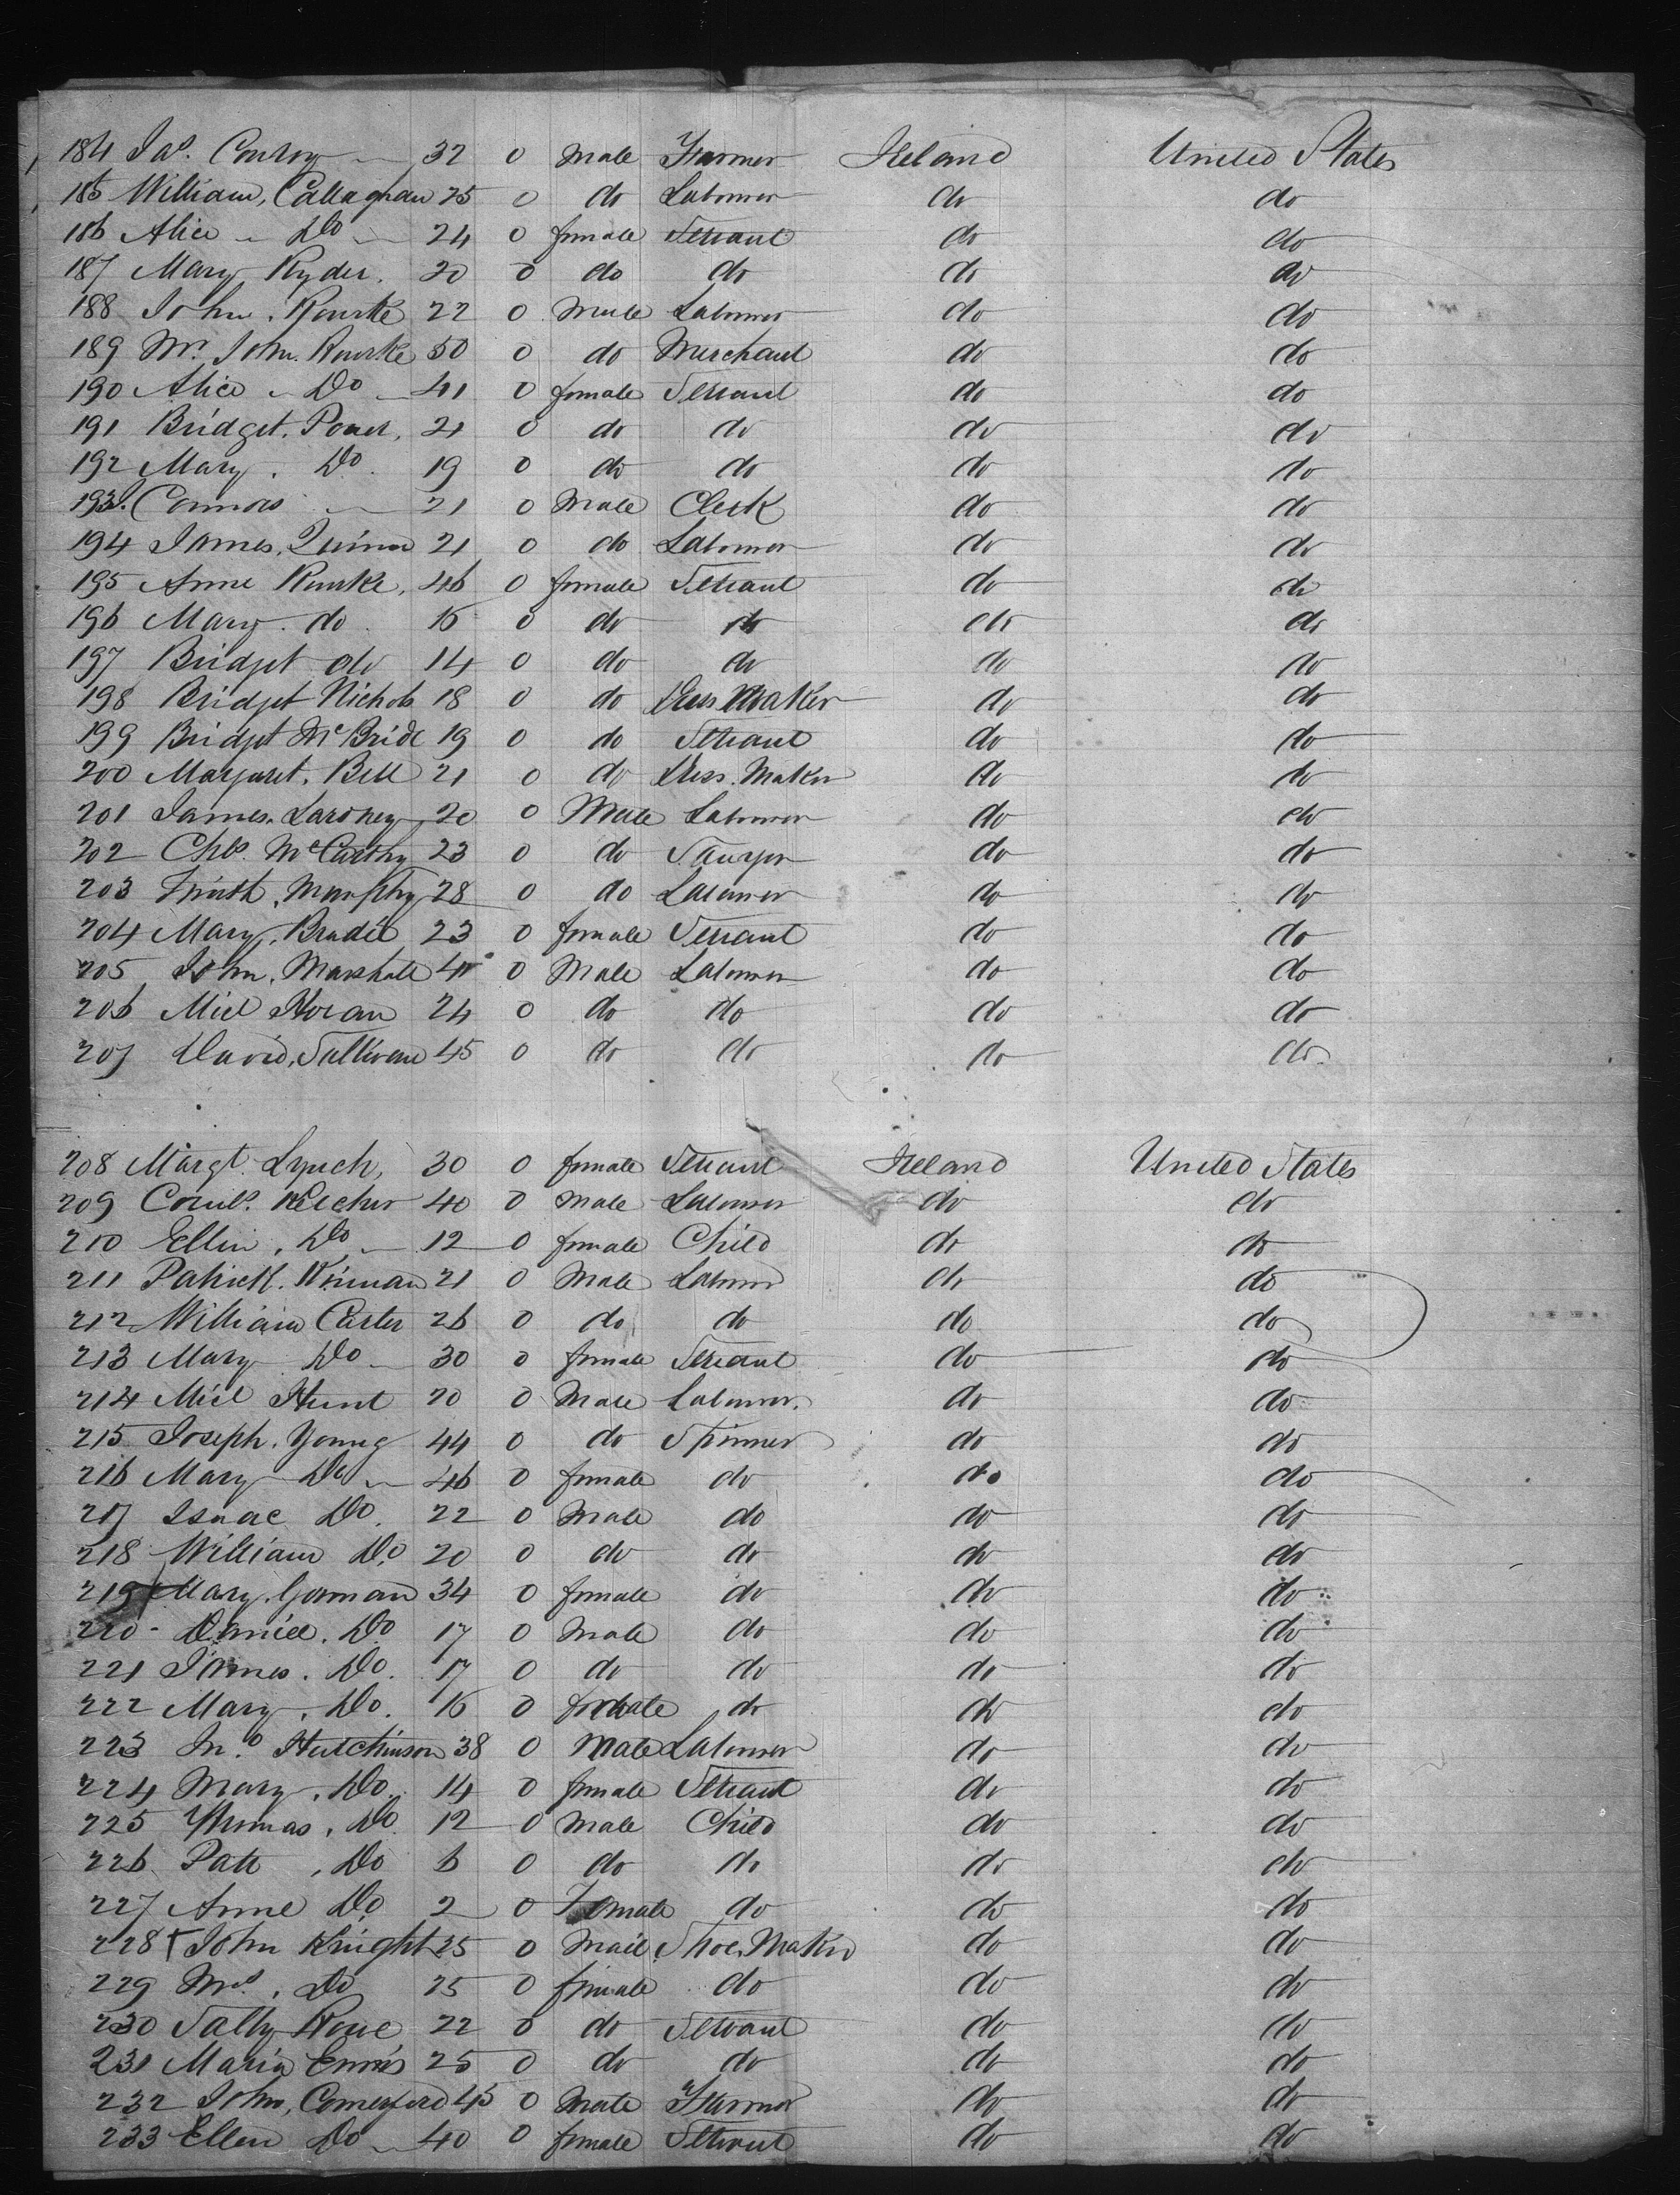 184 Jas. Conroy 32 0 Male Farmer Ireland United States
185 William, Callaghan 25 0 do Labourer do do
186 Alice Do 24 0 female Servant do do
187 Mary Ryder. 20 0 do do do do
188 John. Rourke 22 0 Male Labourer do do
189 Mr. John. Rourke 50 0 do Merchant do do
190 Alice Do 41 0 female Servant do do
191 Bridget. Power, 21 0 do do do do
192 Mary. Do. 19 0 do do do do
193 J. Connors 21 0 Male Clerk do do
194 James, Quinn 21 0 do Labourer do do
195 Anne Rourke, 46 0 female Servant do do
196 Mary. do. 16 0 do do do do
197 Bridget do 14 0 do do do do
198 Bridget Nichols 18 0 do Dress Maker do do
199 Bridget McBride 19 0 do Servant do do
200 Margaret. Bell 21 0 do Dress. Maker do do
201 James. 20 0 Male Labourer do do
202 Chls. McCarthy 23 0 do Sawyer do do
203 Murphy 28 0 do Labourer do do
204 Mary, 23 0 female Servant do do
205 John, Marshall 0 Male Labourer do do
206 Micl Horan 24 0 do do do do
207 David, Sullivan 45 0 do do do do
208 Margt. Lynch, 30 0 female Servant Ireland United States
209 Cornls. Kelcher 40 0 Male Labourer do do
210 Ellin, Do 12 0 female Child do do
211 Patrick. 21 0 Male Labourer do do
212 William Carter 26 0 do do do do
213 Mary Do 30 0 female Servant do do
214 Micl Hunt 20 0 Male Labourer. do do
215 Joseph. Young 44 0 do Spinner do do
216 Mary Do 46 0 female do do do
217 Isaac Do. 22 0 Male do do do
218 William Do 20 0 do do do do
219 Mary. Gorman 34 0 female do do do
220 Daniel. Do 17 0 Male do do do
221 James. Do. 17 0 do do do do
222 Mary, Do. 16 0 female do do do
223 Jno Hutchinson 38 0 Male Labourer do do
224 Mary, Do. 14 0 female Servant do do
225 Thomas, Do 12 0 Male Child do do
226 Patt, Do 6 0 do do do do
227 Anne Do 2 0 Female do do do
228 John Knight 25 0 Male Shoe. Maker do do
229 Mrs., Do 25 0 female do do do
230 Sally 22 0 do Servant do do
231 Maria Ennis 25 0 do do do do
232 John, Comerford 45 0 Male Farmer do do
233 Ellen Do 40 0 female Servant do do